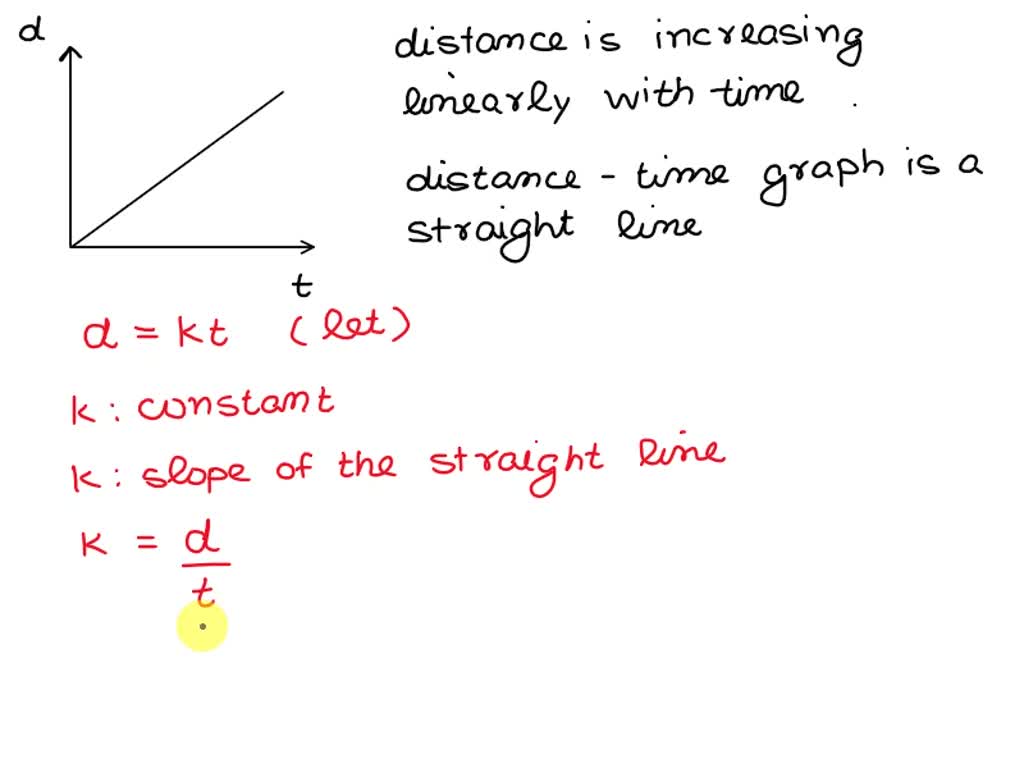 d
distance is increasing
linearly with time .
distance - time graph is a
straight line
t
d = kt (let)
k : constant
k : slope of the straight line
k = d
t